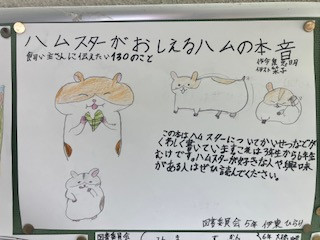 ハムスターがおしえるハムの本音
飼い主さんに伝えたい130のこと
この本はハムスターについてかいせつなどが
くわしく書いています。この本は3年生から6年生
むけです。ハムスターが好きな人や興味
がある人はぜひ読んでください。
図書委員会 5年 伊東